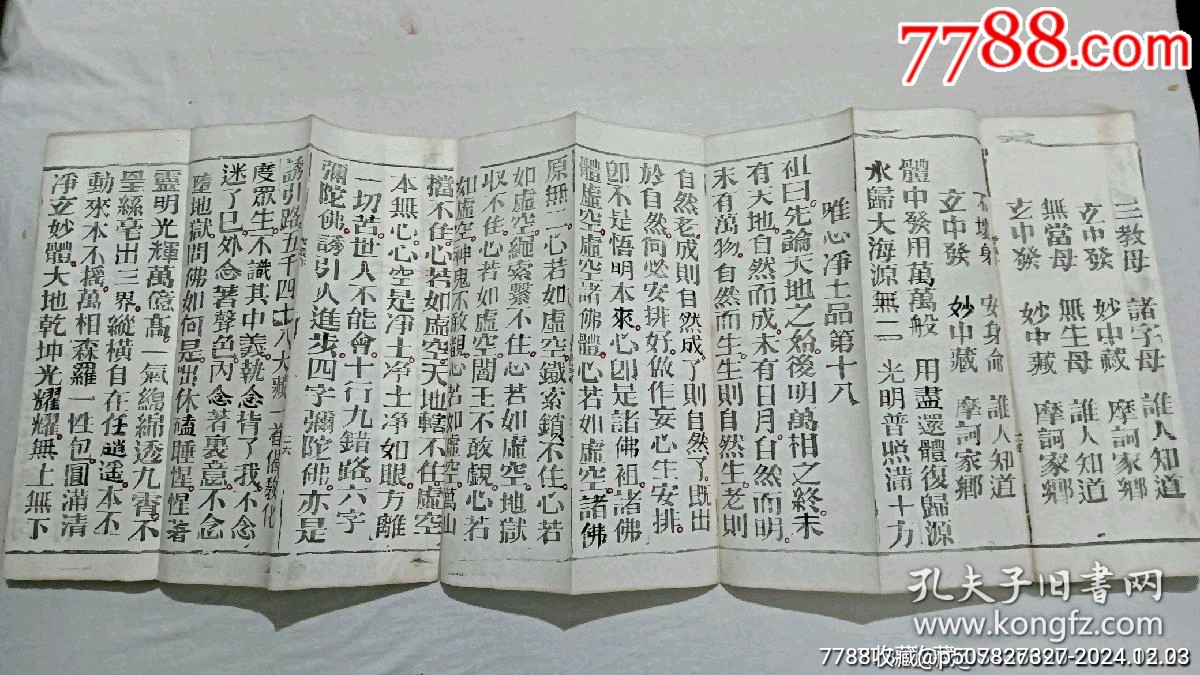 7788.com
三教母　諸字母　誰人知道
玄中發　妙中藏　摩訶家鄉
無當母　無生母　誰人知道
玄中發　妙中藏　摩訶家鄉
壞身　安身命　誰人知道
玄中發　妙中藏　摩訶家鄉
體中發用萬萬般　用盡還體復歸源
水歸大海源無二　光明普照滿十方
唯心凈土品第十八
祖曰先論天地之始後明萬相之終未
有天地自然而成未有日月自然而明
未有萬物自然而生生則自然生老則
自然老成則自然成了則自然了既出
於自然何必安排好做作妄心生安排
卽不是悟明本來心卽是諸佛祖諸佛
體虛空虛空諸佛體心若如虛空諸佛
原無二心若如虛空鐵索鎖不住心若
如虛空繩索繫不住心若如虛空地獄
収不住心若如虛空閻王不敢覷心若
如虛空神鬼不敢覷心若如虛空萬山
擋不住心若如虛空天地轄不住虛空
本無心心空是凈土凈土凈如眼方離
一切苦世人不能會十行九錯路六字
彌陀佛誘引人進步四字彌陀佛亦是
誘引路五千四十八大藏一百偈教化
六
度眾生不識其中義執念皆了我不念
迷了巳外念著聲色內念著裏意不念
墮地獄問佛如何是出休瞌睡惺惺著
靈明光輝萬億髙一氣綿綿透九霄不
星絲毫出三界縱橫自在任逍遥本不
動來本不摇萬相森羅一性包圓滿清
凈玄妙體大地乾坤光耀耀無上無下
孔夫子旧书网
www.kongfz.com
7788收藏@p507827327-2024.12.03